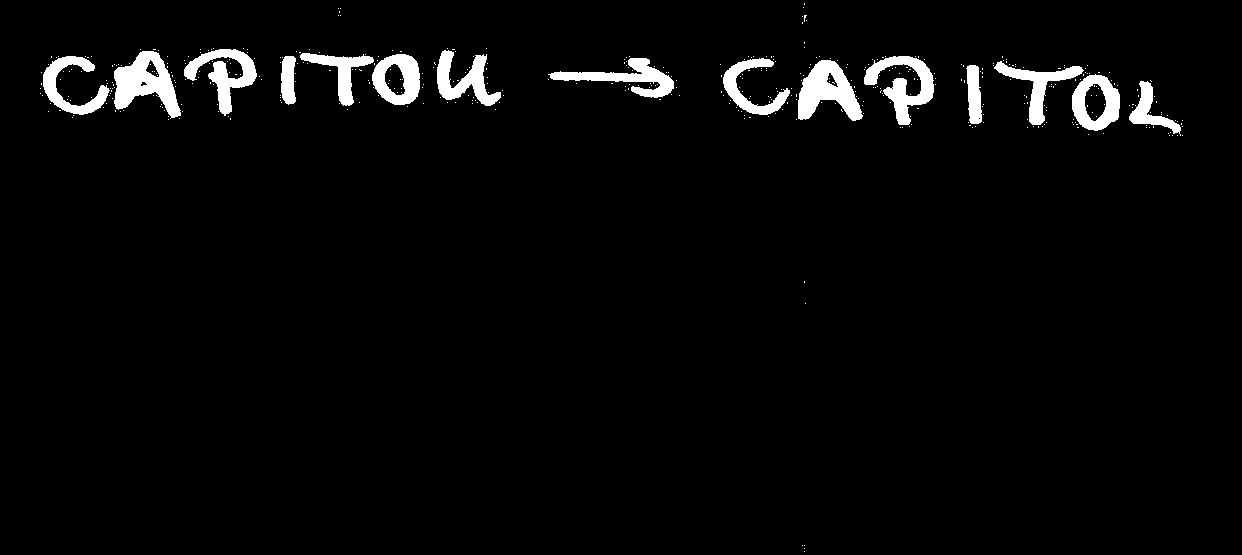 CAPITOU → CAPITOL